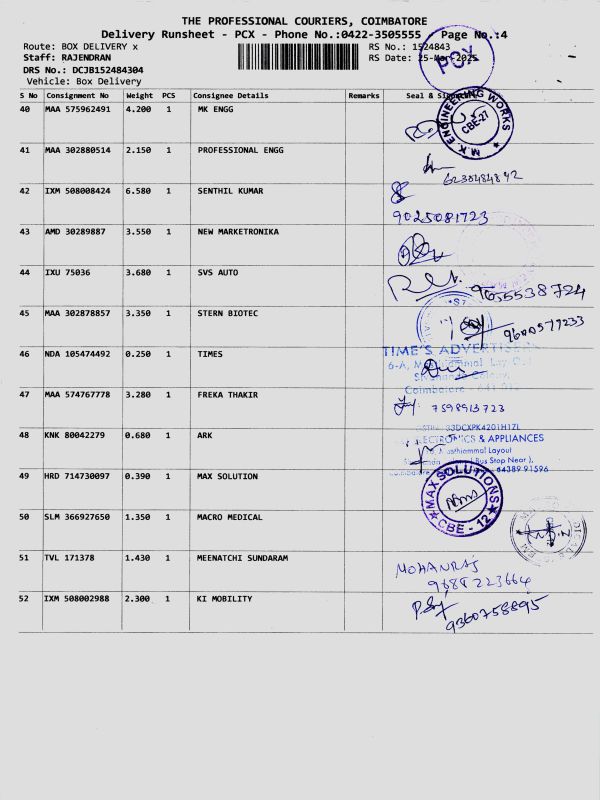 THE PROFESSIONAL COURIERS, COIMBATORE
Delivery Runsheet - PCX - Phone No.:0422-3505555 - Page No.:4
Route: BOX DELIVERY x
RS No.: 1524843
Staff: RAJENDRAN
RS Date: 25-Mar-2025
PCX
DRS No.: DCJB152484304
Vehicle: Box Delivery
S No Consignment No Weight PCS Consignee Details Remarks Seal & Signature
40 MAA 575962491 4.200 1 MK ENGG
M.K. ENGINEERING WORKS
CBE-27
41 MAA 302880514 2.150 1 PROFESSIONAL ENGG
42 IXM 508008424 6.580 1 SENTHIL KUMAR
9025081723
43 AMD 30289887 3.550 1 NEW MARKETRONIKA
44 IXU 75036 3.680 1 SVS AUTO
9655538724
45 MAA 302878857 3.350 1 STERN BIOTEC
9600579233
46 NDA 105474492 0.250 1 TIMES
TIME'S ADVERTISING
6-A,
Coimbatore
47 MAA 574767778 3.280 1 FREKA THAKIR
7598913723
48 KNK 80042279 0.680 1 ARK
33DCXPK4201H1ZL
ELECTRONICS & APPLIANCES
Masthiammal Layout
(Bus Stop Near),
Coimbatore 84389 91596
49 HRD 714730097 0.390 1 MAX SOLUTION
MAX SOLUTIONS
CBE - 12
50 SLM 366927650 1.350 1 MACRO MEDICAL
51 TVL 171378 1.430 1 MEENATCHI SUNDARAM
MOHANRAJ
9688223664
52 IXM 508002988 2.300 1 KI MOBILITY
9360758895